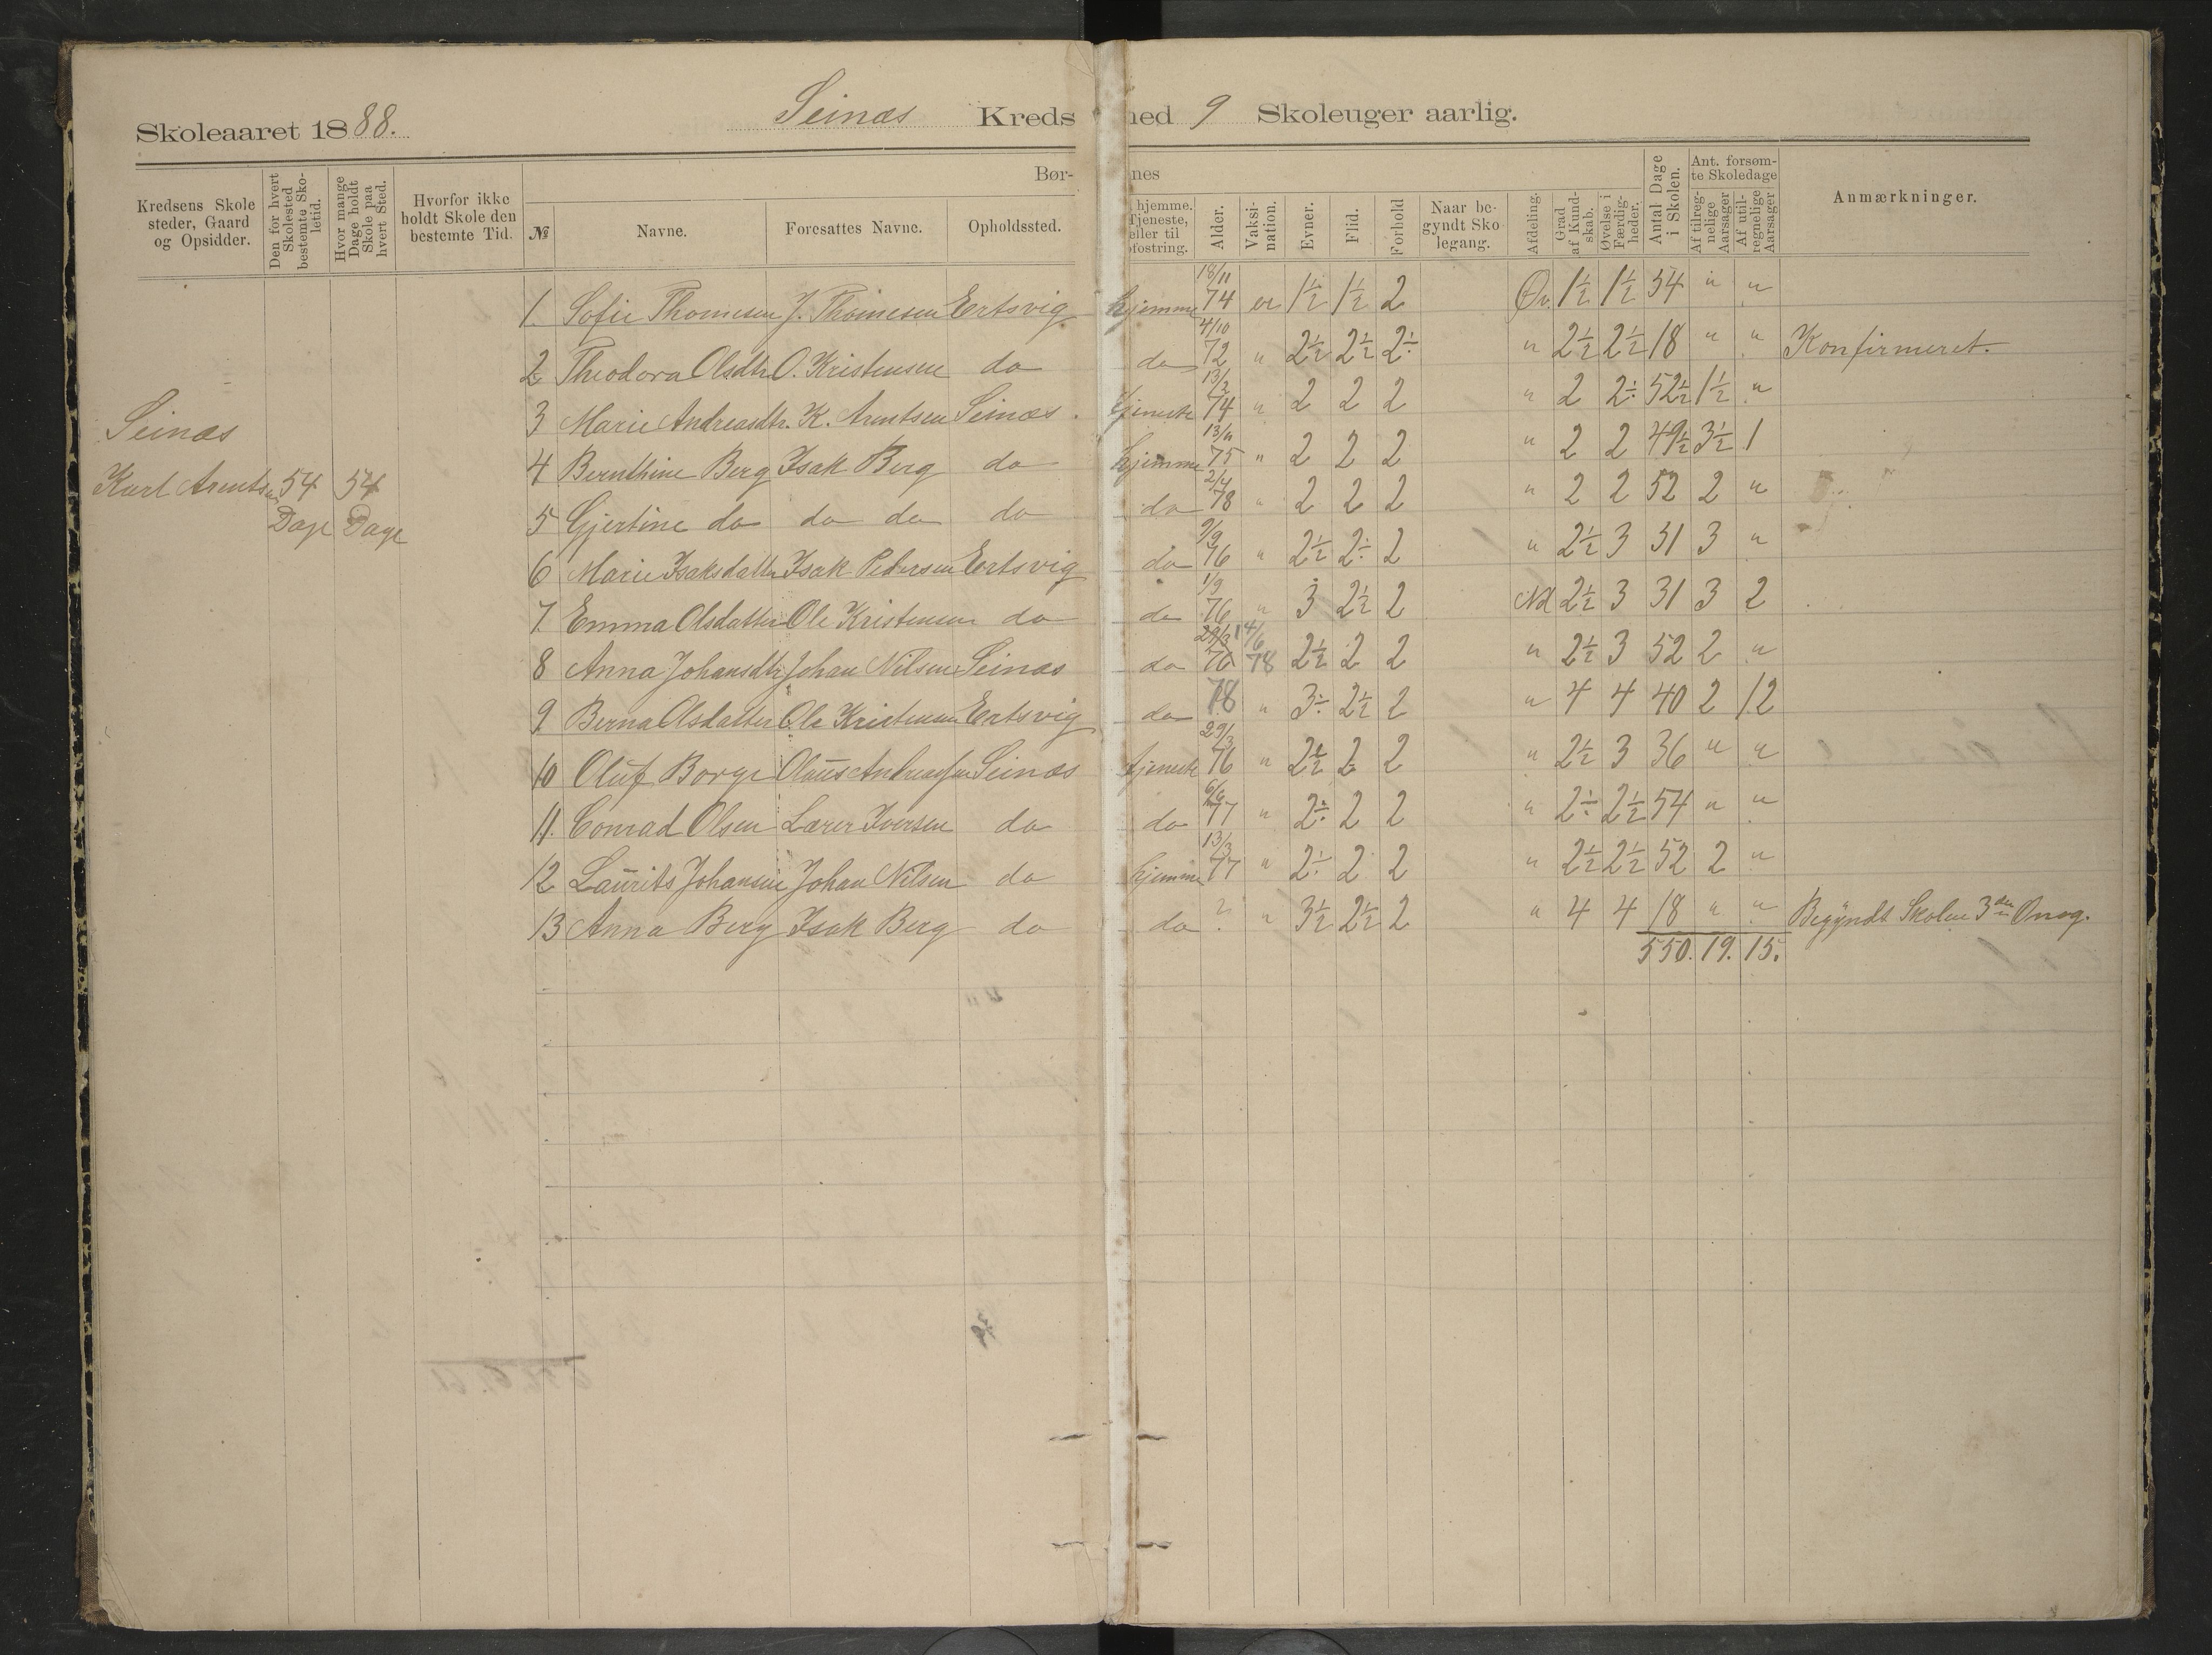 Skoleaaret 1888. Seinæs Kreds med 9 Skoleuger aarlig.
Kredsens Skolesteder, Gaard og Opsidder.
Den for hvert Skolested bestemte Skoletid.
Hvor mange Dage holdt Skole paa hvert Sted.
Hvorfor ikke holdt Skole den bestemte Tid.
Børnes
№ Navne. Foresattes Navne. Opholdssted. hjemme. Tjeneste, eller til ofostring. Alder. Vaksination. Evner. Flid. Forhold Naar begyndt Skolegang. Afdeling. Grad af Kundskab. Øvelse i Færdigheder. Antal Dage i Skolen. Ant. forsømte Skoledage Af tilregnelige Aarsager Af utilregnelige Aarsager Anmærkninger.
1. Sofie Thomesen J. Thomesen Ertsvig hjemme 18/11 74 er 1½ 1½ 2 Øv. 1½ 1½ 54 " "
2 Theodora Olsdtr O. Kristensen do do 4/10 72 " 2½ 2½ 2÷ " 2½ 2½ 18 " " Konfirmeret.
3 Marie Andreasdtr. K. Arntsen Seinæs. tjeneste 13/2 74 " 2 2 2 " 2 2÷ 52½ 1½ "
Seinæs
4 Bernthine Berg Isak Berg do hjemme 75 " 2 2 2 " 2 2 49½ 3½ 1
Karl Arentsen 54 Dage 54 Dage
5 Gjertine do do do do do 2/4 78 " 2 2 2 " 2 2 52 2 "
6 Marie Isaksdatter Isak Pedersen Ertsvig do 9/9 76 " 2½ 2÷ 2 " 2½ 3 31 3 "
7. Emma Olsdatter Ole Kristensen do do 1/9 76 " 3 2½ 2 Nd 2½ 3 31 3 2
8 Anna Johansdtr Johan Nilsen Seinæs do 29/3 76 14/6 78 2½ 2 2 " 2½ 3 52 2 "
9. Berna Olsdatter Ole Kristensen Ertsvig do 78 " 3÷ 2½ 2 " 4 4 40 2 12
10 Oluf Borge Olaus Andreassen Seinæs tjeneste 29/3 76 " 2½ 2 2 " 2½ 3 36 " "
11. Conrad Olsen Lærer Iversen do do 77 " 2÷ 2 2 " 2÷ 2½ 54 " "
12 Laurits Johansen Johan Nilsen do hjemme 13/3 77 " 2÷ 2 2 " 2½ 2½ 52 2 "
13 Anna Berg Isak Berg do do ? " 3½ 2½ 2 " 4 4 18 " " Begyndt Skolen 3die Omg.
550. 19. 15.